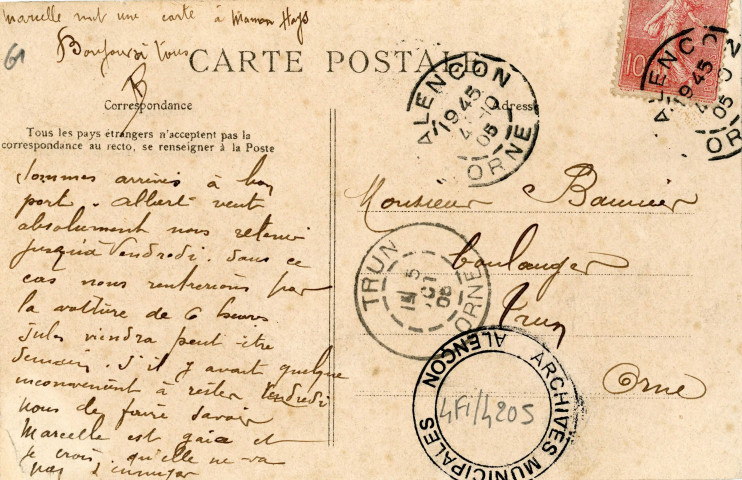 Marcelle met une carte à Maman Hays
Bonjour à tous
61
CARTE POSTALE
Correspondance
Adresse
Tous les pays étrangers n'acceptent pas la
correspondance au recto, se renseigner à la Poste
Sommes arrivés à bon
port. Albert veut
absolument nous retenir
jusqu'à Vendredi. Dans ce
cas nous rentrerions par
la voiture de 6 heures
Jules viendra peut être
demain. S'il y avait quelque
inconvenient à rester Vendredi
nous de faire savoir
Marcelle est gaie et
je crois qu'elle ne va
pas s'ennuyer
Monsieur
boulanger
Trun
Orne
ALENCON
1945
4-10
05
ORNE
ALENCON
1945
05
ORNE
10
TRUN
5
OCT
05
ORNE
ARCHIVES MUNICIPALES
ALENÇON
4Fi/4205